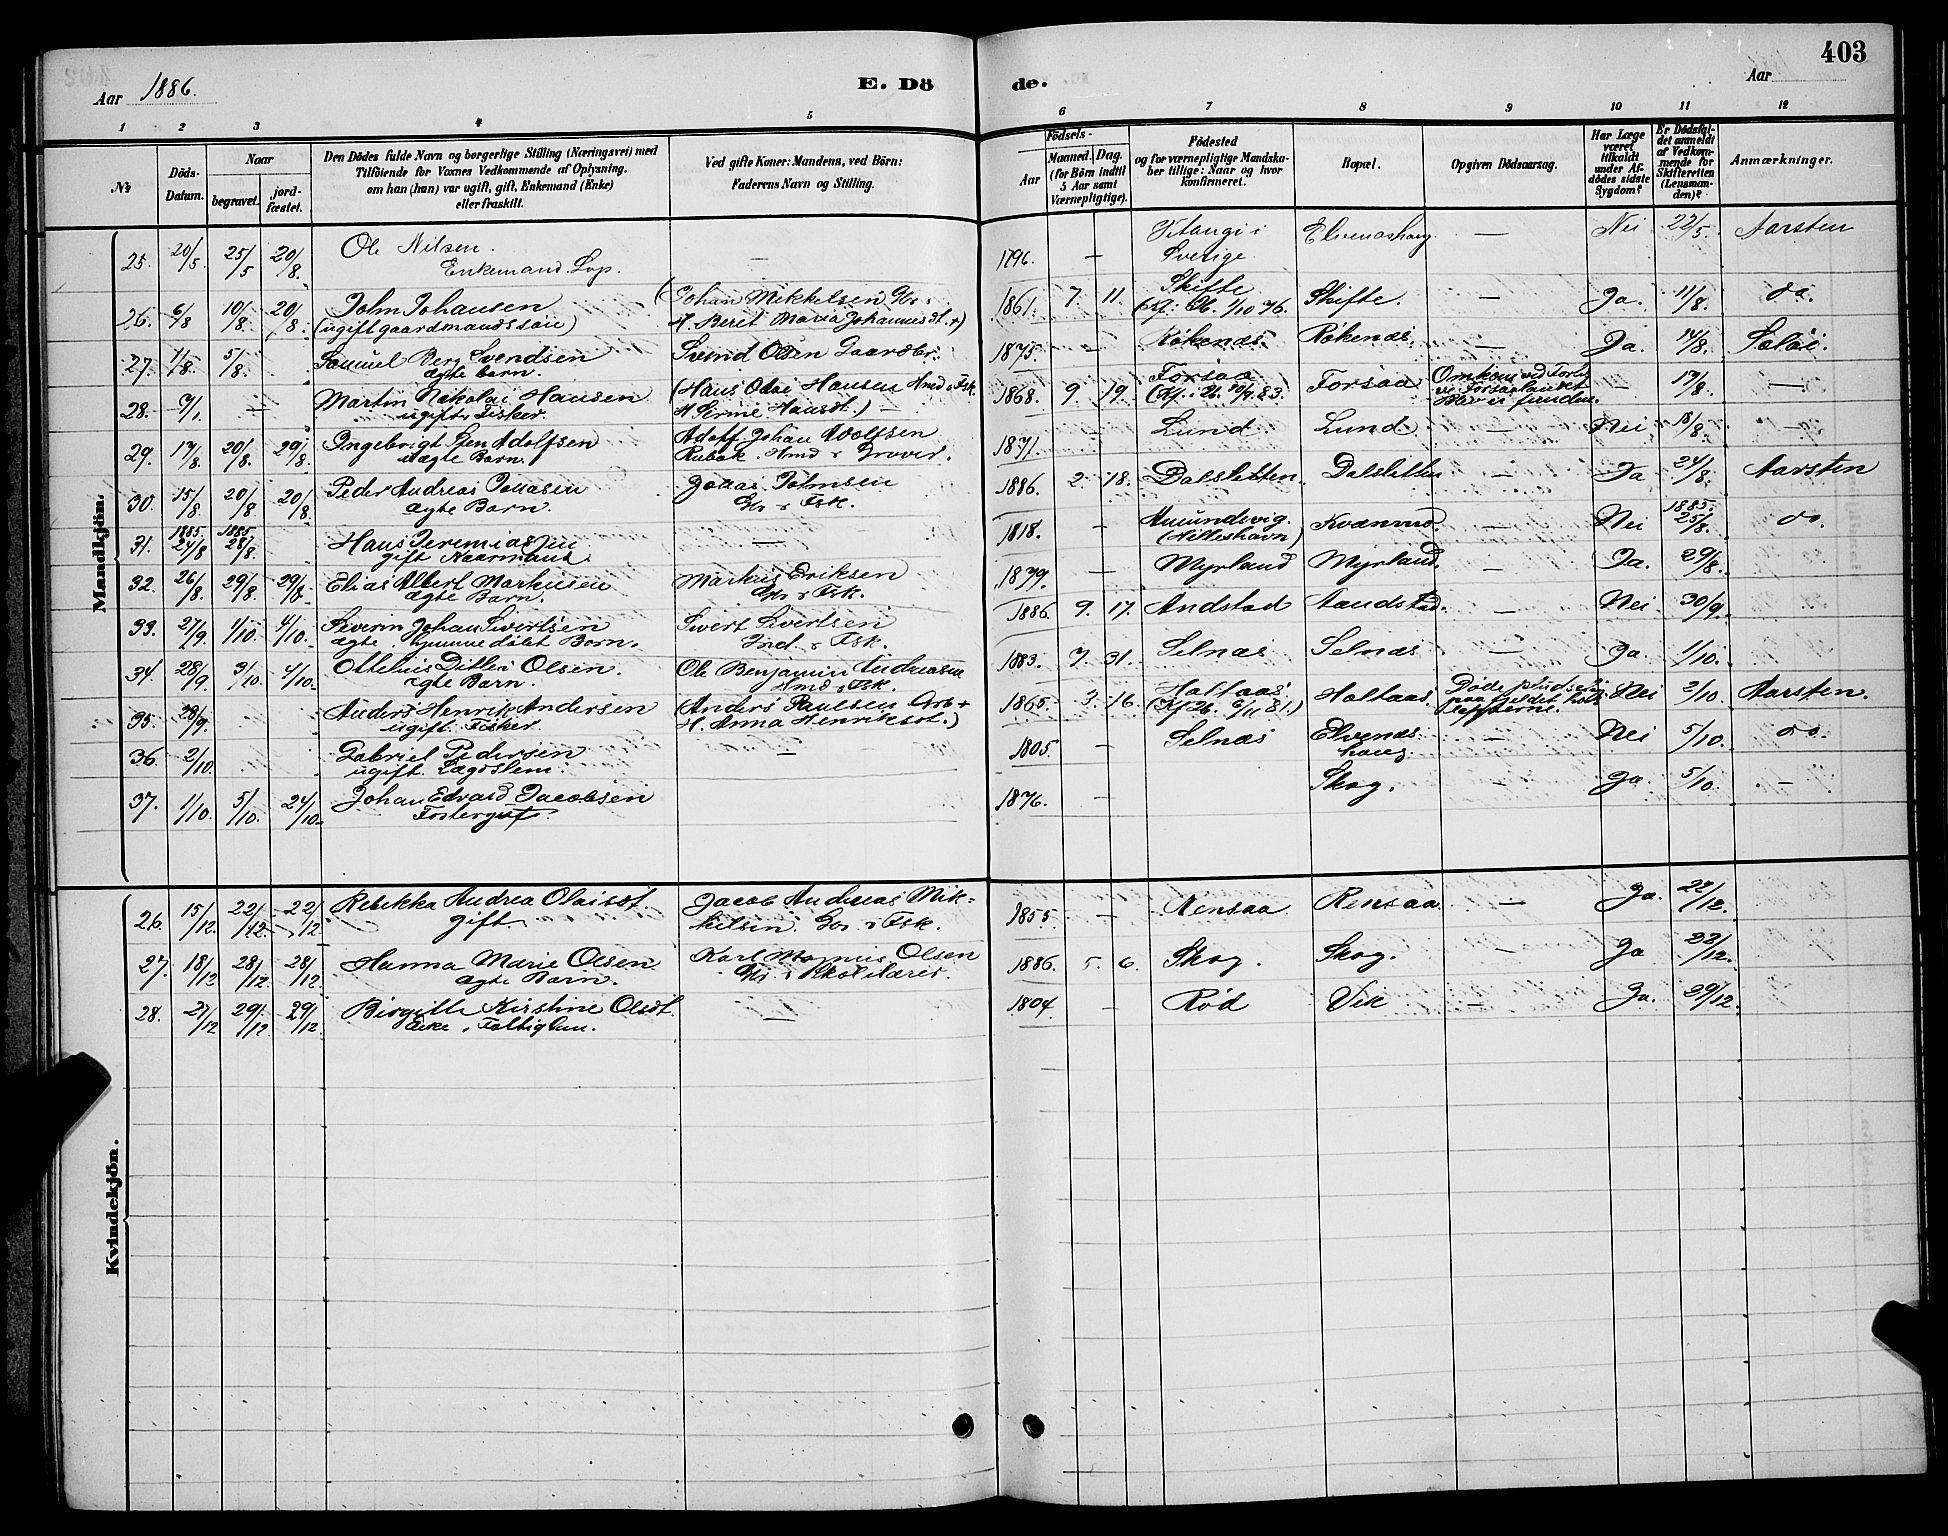 403
Aar 1886.
E. Dö
de.
Aar
1 2 3 4 5 6 7 8 9 10 11 12
No
Döds-Datum.
Naar
begravet.
jord-fæstet.
Den Dödes fulde Navn og borgerlige Stilling (Næringsvei) med
Tilföiende for Voxnes Vedkommende af Oplysning,
om han (hun) var ugift, gift, Enkemand (Enke)
eller fraskilt.
Ved gifte Koner: Mandens, ved Börn:
Faderens Navn og Stilling.
Födsels-
Aar
Maaned. Dag.
(for Börn indtil
5 Aar samt
Værnepligtige).
Födested
og for værnepligtige Mandska-
ber tillige: Naar og hvor
konfirmeret.
Bopæl.
Opgiven Dödsaarsag.
Har Læge
været
tilkaldt
under Af-
dödes sidste
Sygdom?
Er Dödsfal-
det anmeldt
af Vedkom-
mende for
Skifteretten
(Lensman-
den)?
Anmærkninger.
Mandkjön.
25. 20/5 25/5 20/8. Ole Nilsen. — 1796. — Vitangi i Elvenashaug — Nei 22/5. Aarsten
Enkemand Lap. Sverige.
26. 6/8 10/8. 20/8. John Johansen (Johan Mikkelsen Gbr. 1861. 7. 11. Skifte Skifte. — Ja. 11/8. do.
(ugift gaardmandssøn) H. Beret Maria Johannesdt. +) (Kf. 26. 1/10 76.
27. 1/8. 5/8. Samuel Berg Svendsen Svend Olsen Gaardbr. 1875. — Røkenæs. Røkenæs. — Ja. 14/8. Søløi.
ægte barn.
28. 9/1. — Martin Nikolai Hansen (Hans Olai Hansen Hmd & Fsk. 1868. 9. 19. Forsaa Forsaa Omkom ved Forlis — 17/8. —
ugift Fisker. H. Serine Hansdt.) — ved Forsaalandet
Blev ei funden.
29. 17/8. 20/8. 29/8. Ingebrigt Jen Adolfsen Adolf Johan Adolfsen 1871. Lund Lund. — Nei 18/8. —
uægte Barn. Kubak. Hmd & Graver.
30. 15/8 20/8 20/8. Peder Andreas Jonasen Jonas Johnsen 1886. 2. 18. Dalsletten. Dalsletten — Ja 24/8. Aarsten
ægte Barn. Gbr & Fsk.
31. 1885. 24/8 1885. 28/8. Hans Jeremiassen — 1818. — Amundsvig. Kvanvid. — Nei 1885. 25/8. do.
gift Kaarmand (Nilleshavn)
32. 26/8. 29/8. 29/8. Elias Albert Markusen Markus Eriksen 1879. Myrland Myrland. Ja. 29/8.
ægte Barn. Gbr & Fsk.
33. 27/9. 1/10. 4/10. Severin Johan Sivertsen Sivert Sivertsen 1886 9. 17. Andstad Aandstad. — Nei. 30/9.
ægte, hjemmedøbt Barn. Ind. & Fsk.
34. 28/9. 3/10. 4/10. Ottelius Ditlev Olsen. Ole Benjamin Andreasen 1883. 7. 31. Selnæs Selnæs — Ja. 1/10.
ægte Barn. Hmd & Fsk.
35. 28/9. Anders Henrik Andersen (Anders Paulsen Arb + 1865. 3. 16. Haltaas. Haltaas Døde pludselig Nei 2/10. Aarsten.
ugift. Fisker. H. Anna Henriksdt.) (Kf 26. 6/11 81.)
36. 2/10. Gabriel Pedersen — 1805. — Selnæs Elvenæs — Nei 5/10. do.
ugift. Lægdslem. haug
37. 1/10. 5/10. 24/10. Johan Edvard Jacobsen 1876. — Skog. — Ja 5/10. —
Kvindekjön.
26. 15/12. 22/12. 22/12 Rebekka Andrea Olaisdt. Jacob Andreas Mik- 1855. — Rensaa Rensaa — Ja. 22/12.
gift. kelsen. Gbr. & Fsk.
27. 18/12 28/12. 28/12. Hanna Marie Olsen. Karl Magnus Olsen 1886. 5. 6. Skog. Skog. — Ja 23/12.
ægte Barn. Gbr & Skolelærer
28. 27/12 29/12. 29/12. Birgitte Kirstine Olsdt. — 1804. — Rød Vik — Ja. 29/12.
Enke, Fattiglem.